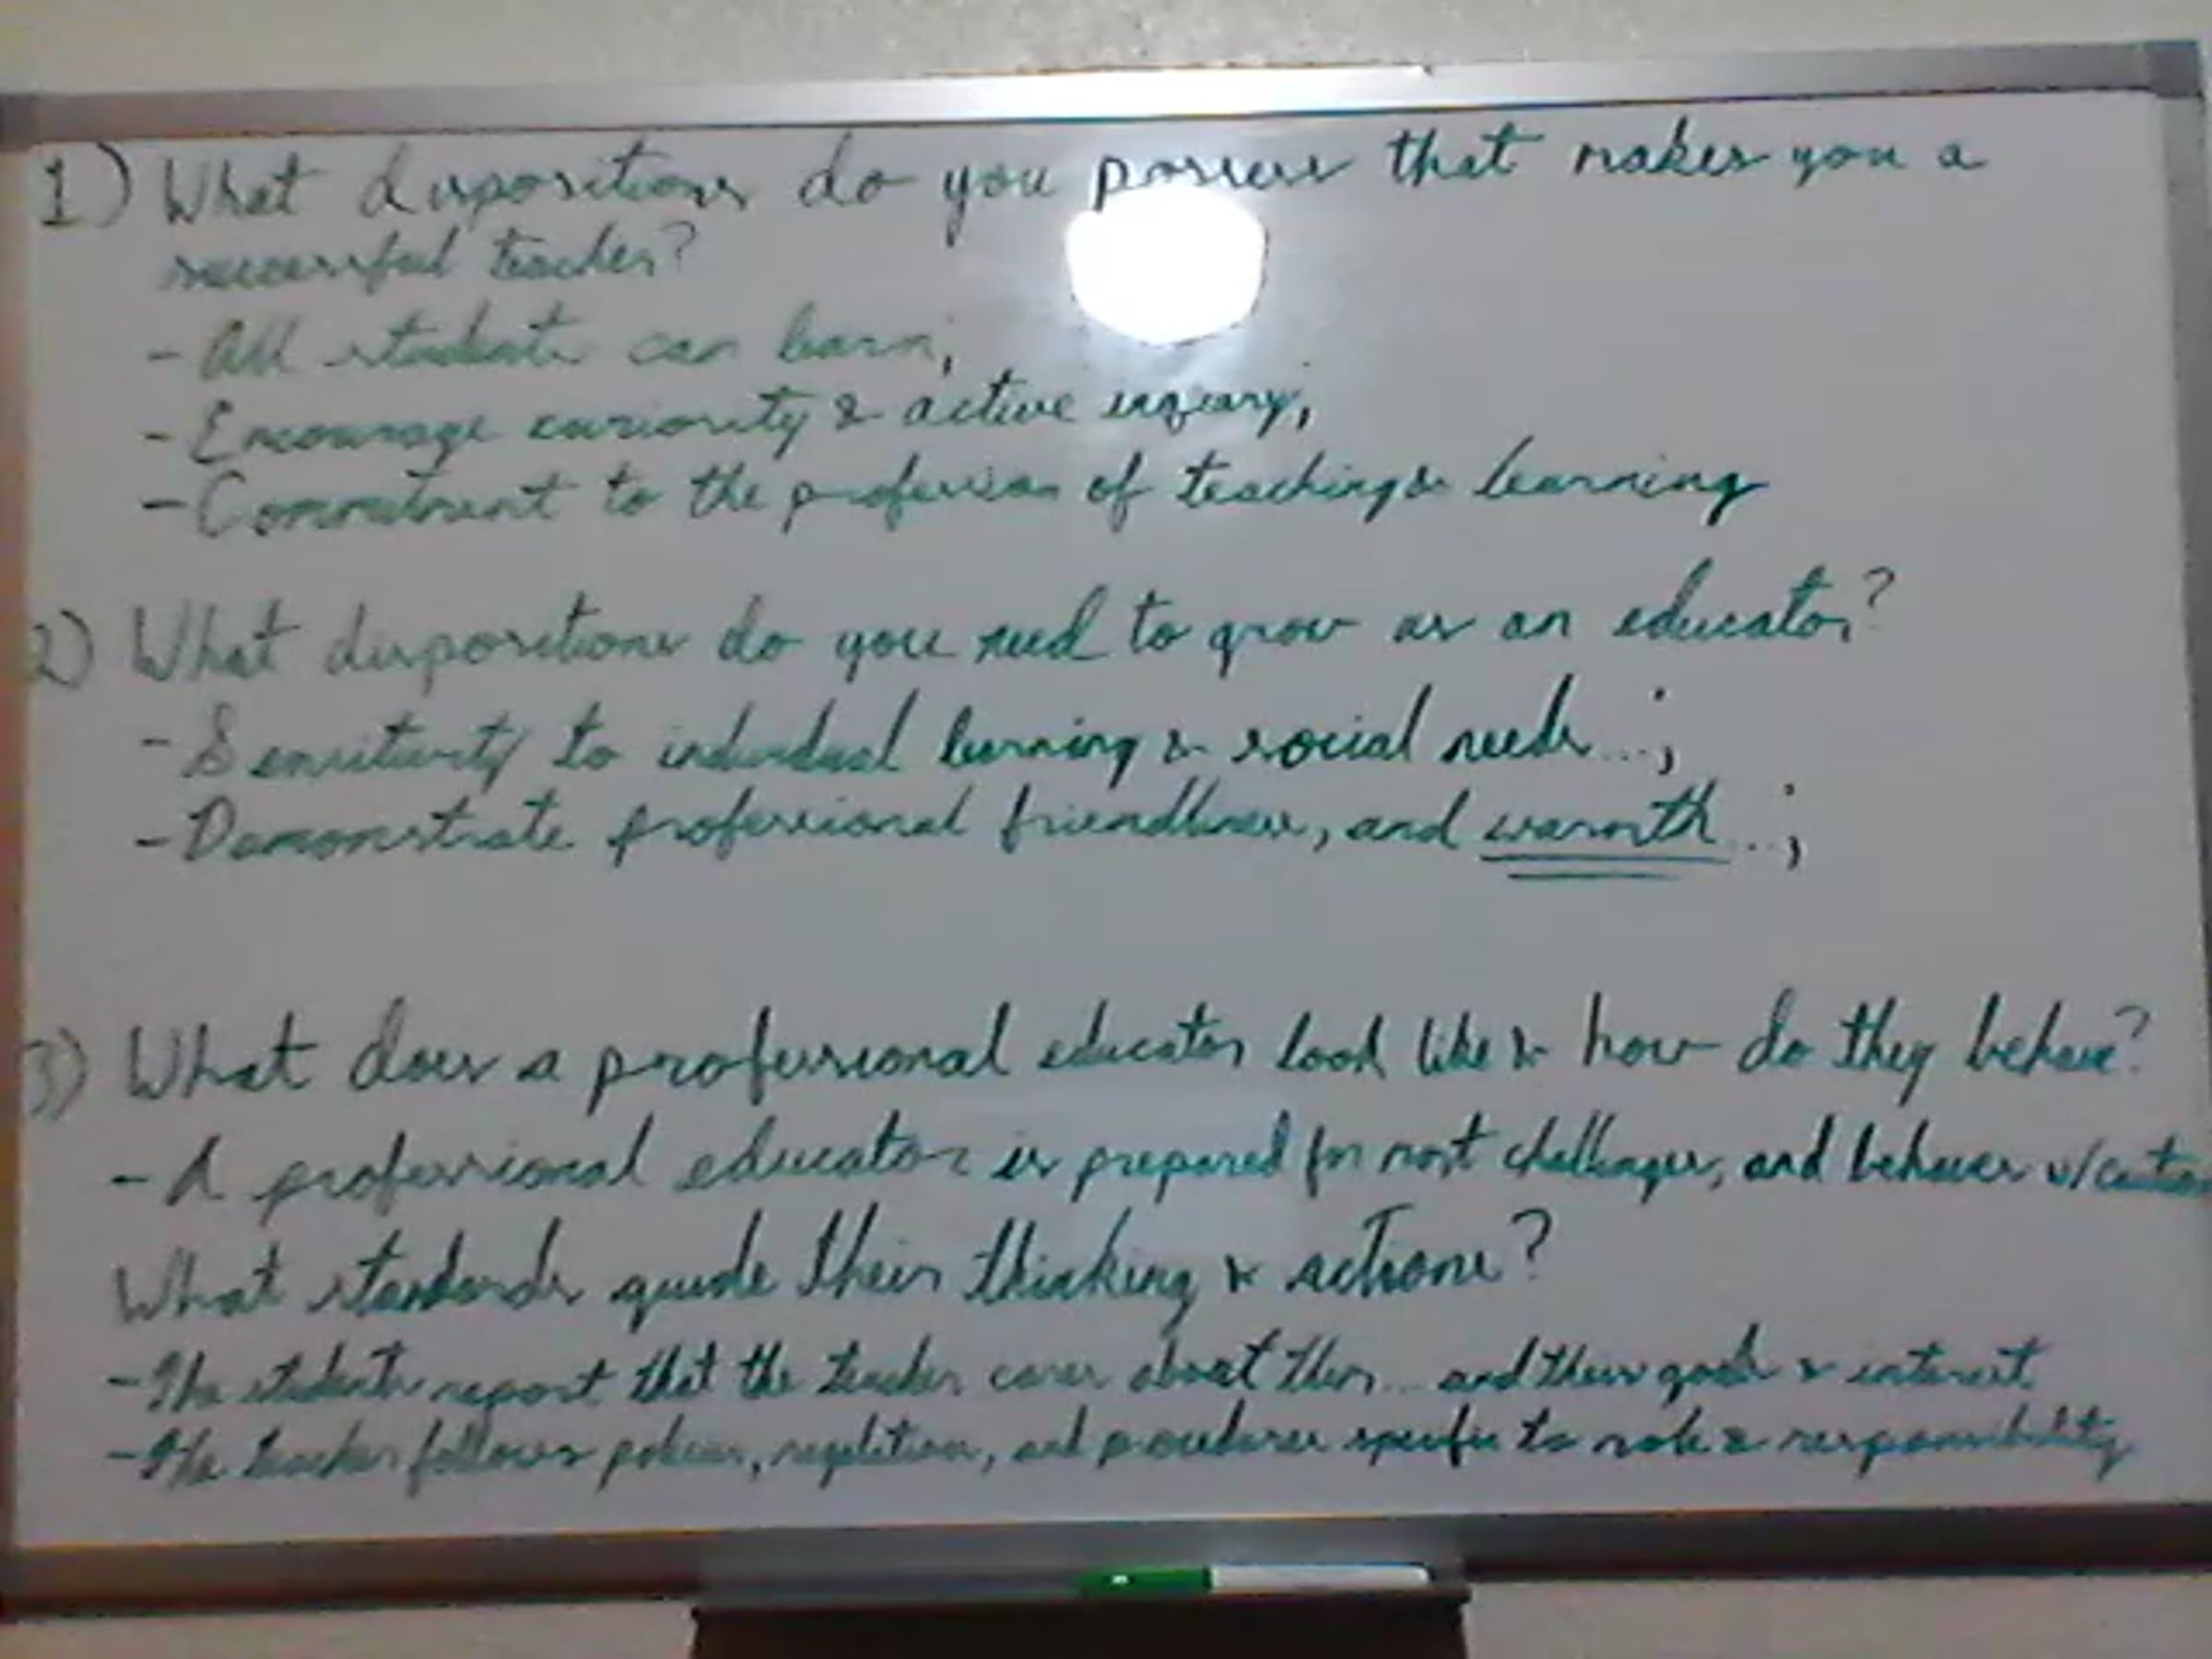 1) What dispositions do you possess that makes you a
successful teacher?
- All students can learn;
- Encourage curiosity & active inquiry;
- Commitment to the profession of teaching & learning
2) What dispositions do you need to grow as an educator?
- Sensitivity to individual learning & social needs...;
- Demonstrate professional friendliness, and warmth...;
3) What does a professional educator look like & how do they behave?
- A professional educator is prepared for most challenges, and behaves w/caution
What standards guide their thinking & actions?
- The students report that the teacher cares about them... and their goals & interest.
- The teacher follows policies, regulation, and procedures specific to role & responsibility